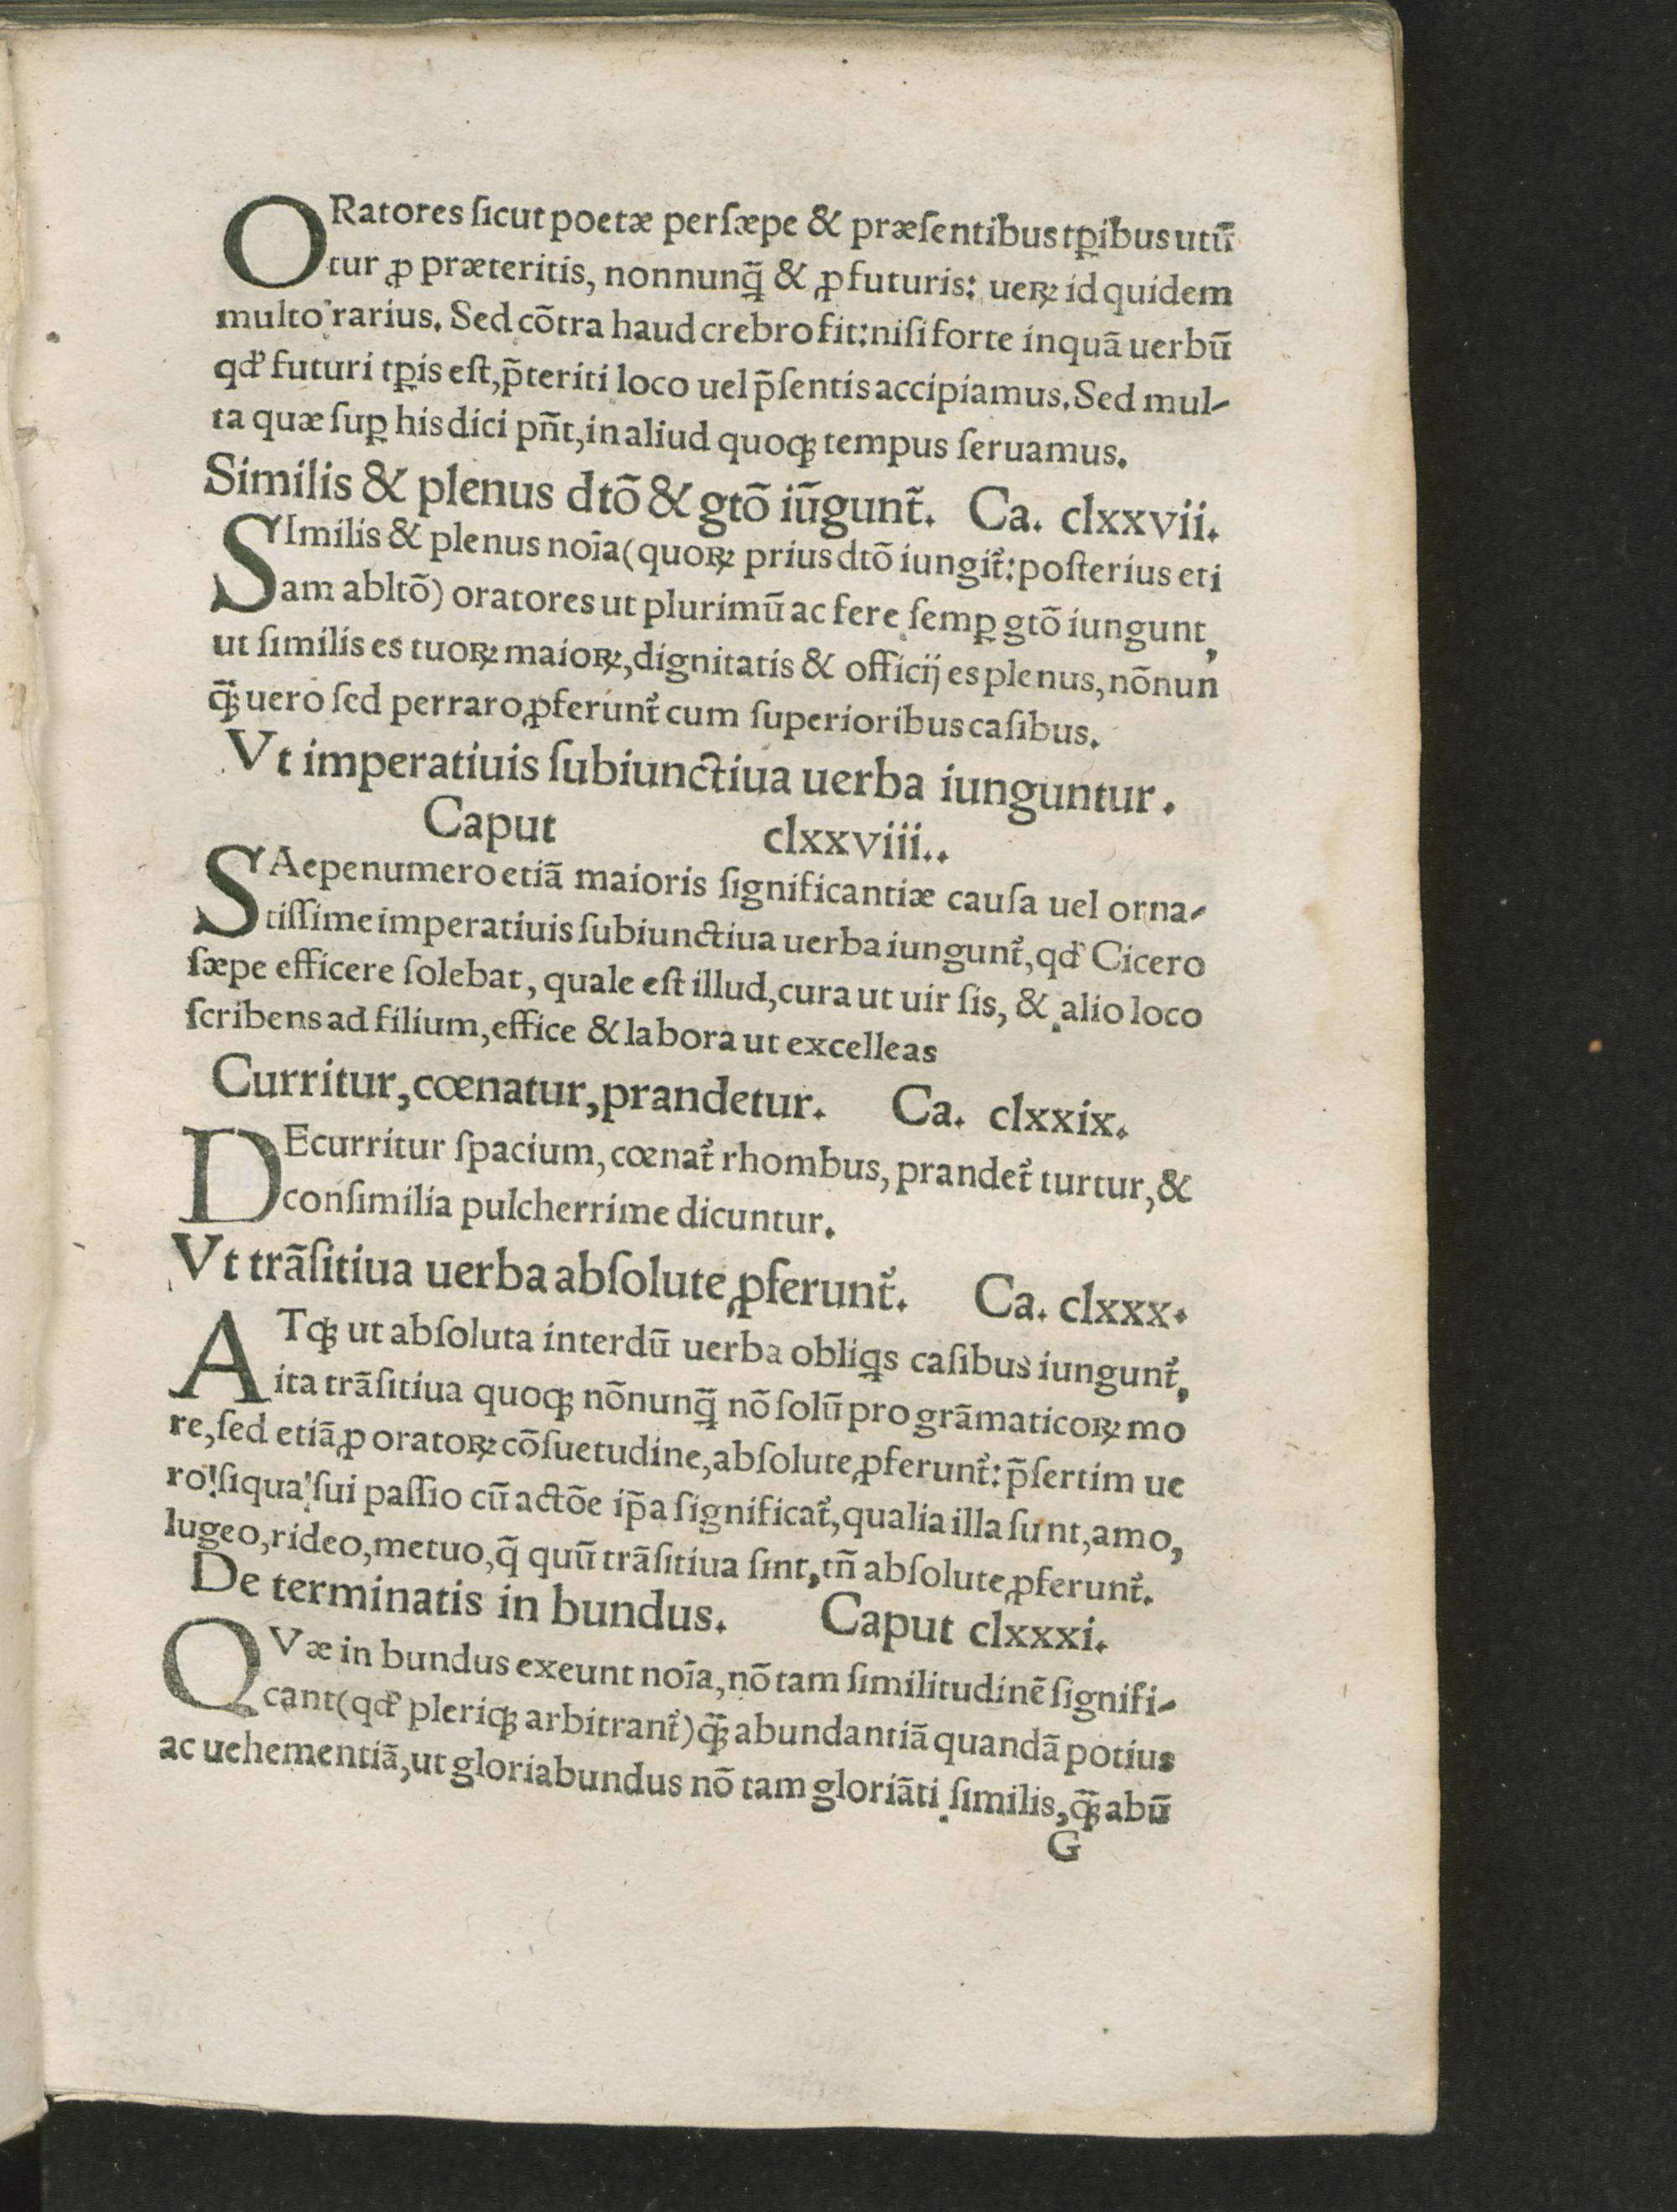 ORatores ſicut poetæ perſæpe & præſentibus tꝑibus utū
tur ꝓ præteritis, nonnunꝗ̃ & ꝓ futuris: ueꝝ id quidem
multo rarius. Sed cõtra haud crebro fit: niſi forte inquã uerbũ
qd̕ futuri tꝑis eſt, p̃teriti loco uel p̃ſentis accipiamus. Sed mul-
ta quæ ſuꝑ his dici pñt, in aliud quoqꝫ tempus ſeruamus.
Similis & plenus dtõ & gtõ iũgunt̃. Ca. clxxvii.
SImilis & plenus noĩa (quoꝝ prius dtõ iungit̃: poſterius eti
am abltõ) oratores ut plurimũ ac fere ſemꝑ gtõ iungunt,
ut ſimilis es tuoꝝ maioꝝ, dignitatis & officij es plenus, nõnun
q̃ꝫ uero ſed perraro ꝓferunt̃ cum ſuperioribus caſibus.
Vt imperatiuis ſubiunctiua uerba iunguntur.
Caput clxxviii..
SAepenumero etiã maioris ſignificantiæ cauſa uel orna-
tiſſime imperatiuis ſubiunctiua uerba iungunt̃, qd̕ Cicero
ſæpe efficere ſolebat, quale eſt illud, cura ut uir ſis, & alio loco
ſcribens ad filium, effice & labora ut excelleas
Curritur, cœnatur, prandetur. Ca. clxxix.
DEcurritur ſpacium, cœnat̃ rhombus, prandet̃ turtur, &
conſimilia pulcherrime dicuntur.
Vt trãſitiua uerba abſolute ꝓferunt̃. Ca. clxxx.
ATqꝫ ut abſoluta interdũ uerba obliꝗs caſibus iungunt̃,
ita trãſitiua quoqꝫ nõnunꝗ̃ nõ ſolũ pro grãmaticoꝝ mo
re, ſed etiã ꝓ oratoꝝ cõſuetudine, abſolute ꝓferunt̃: p̃ſertim ue
ro ſiqua ſui paſſio cũ actõe ip̃a ſignificat̃, qualia illa ſunt, amo,
lugeo, rideo, metuo, q̃ quũ trãſitiua ſint, tñ abſolute ꝓferunt̃.
De terminatis in bundus. Caput clxxxi.
QVæ in bundus exeunt noĩa, nõ tam ſimilitudinẽ ſignifi-
cant (qd̕ pleriqꝫ arbitrant̃) q̃ꝫ abundantiã quandã potius
ac uehementiã, ut gloriabundus nõ tam gloriãti ſimilis, q̃ꝫ abũ
G